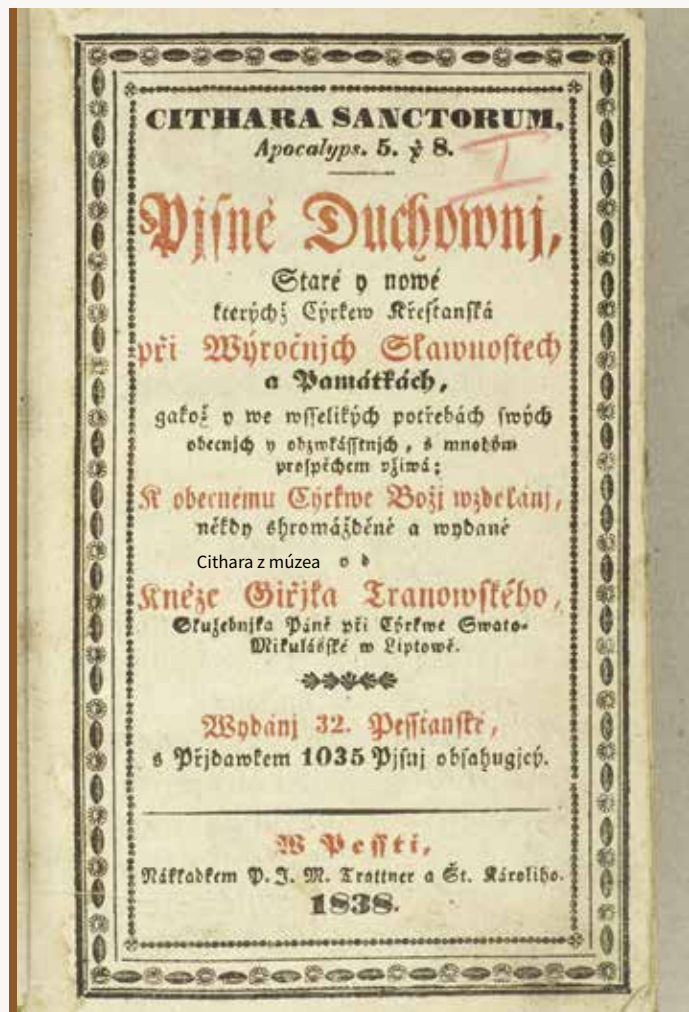 CITHARA SANCTORUM.
Apocalyps. 5. ℣ 8.
I
Pjsně Duchownj,
Staré y nowé
kterýchž Cýrkew Křesťanská
při Wýročnjch Slawnostech
a Památkách,
gakož y we wsselikých potřebách swých
obecnjch y obzwlásstnjch, s mnohým
prospěchem vžiwá:
K obecnému Cýrkwe Božj wzdelánj,
někdy shromážděné a wydané
Cithara z múzea
od
Kněze Giřjka Tranowského,
Služebnjka Páně při Cýrkwe Swato-
Mikulásské w Liptowě.
Wydánj 32. Pesstianské,
s Přjdawkem 1035 Pjsnj obsahugjcý.
W Pessti,
Nákladkem P. J. M. Trattner a Št. Károliho.
1838.